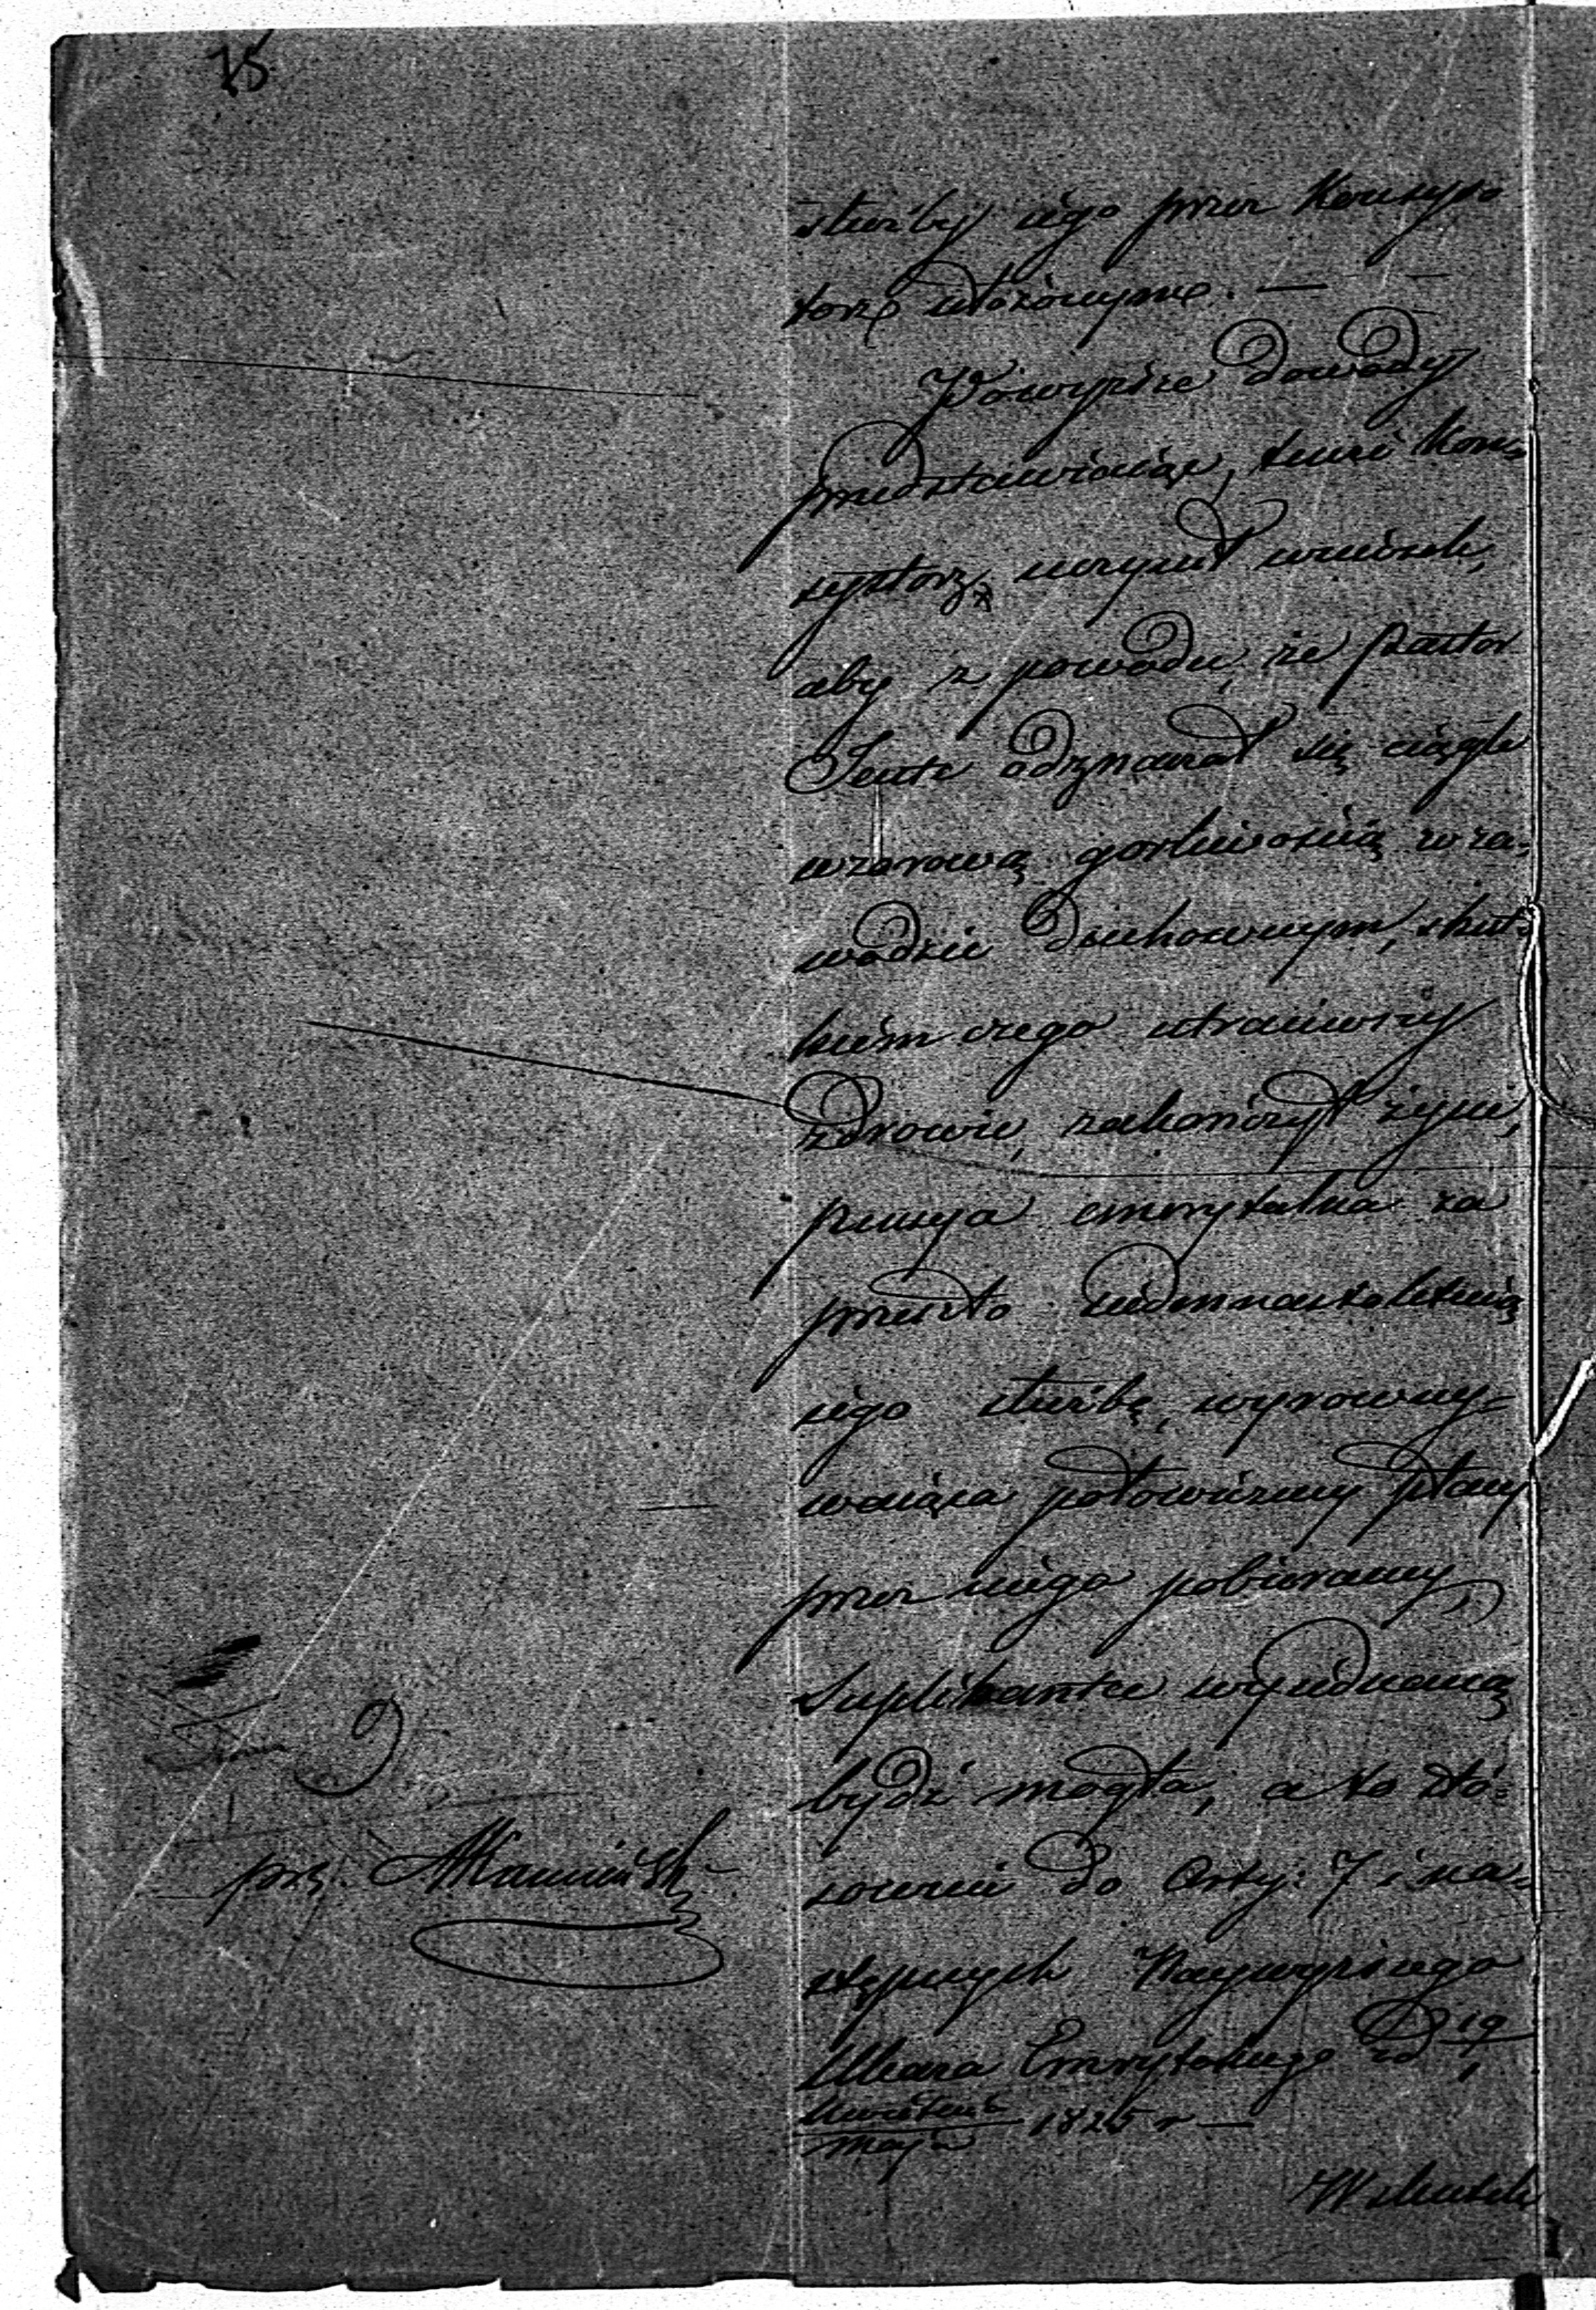 75
służby iego przez Konsys-
torz ułożonym. —
Powyższe dowody
przedstawiaiąc, tenże Kon-
systorz uczynił wniosek,
aby z powodu, że Pastor
odznaczał się ciągle
wzorową gorliwością w za-
wodzie duchownym, skut-
kiem czego utraciwszy
zdrowie, zakończył życie,
pensya emerytalna za
przeszło siedmnastoletnią
iego służbę, wyrowny-
waiąca połowiczney płacy
przez niego pobieraney,
Suplikantce wyiednaną
bydź mogła, a to sto-
sownie do Arty: 7 i na-
stępnych Naywyższego
Ukazu Emerytalnego z d 19/1
Kwietnia/Maja 1825 r —
prz. AKamiński
W skutek